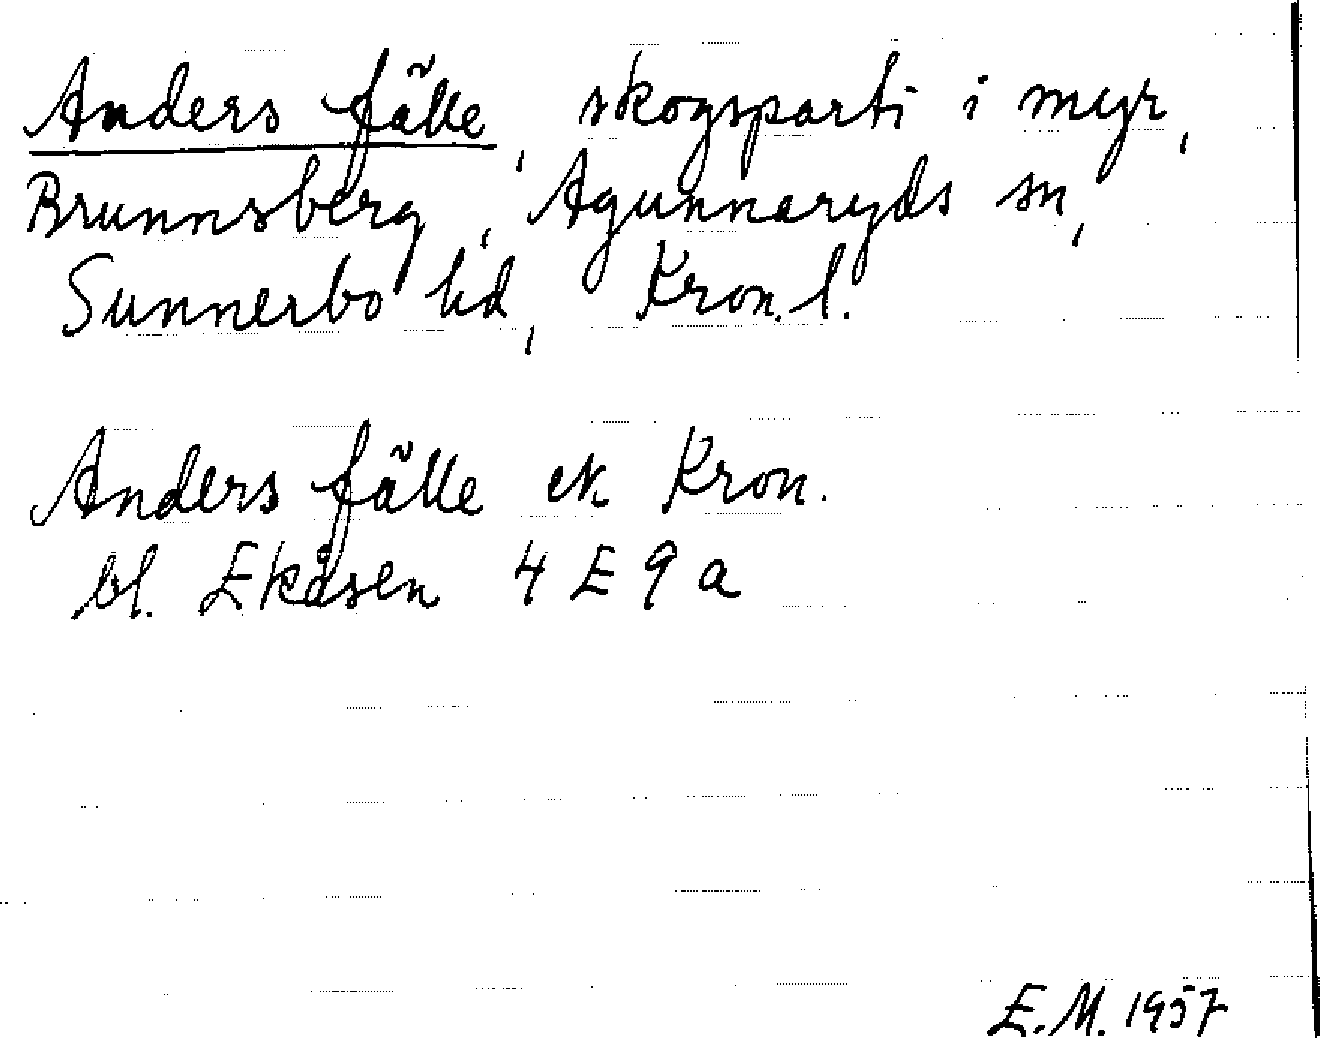 Anders fälle, skogsparti i myr,
Brunnsberg, Agunnaryds sn,
Sunnerbo hd, Kron. l.
Anders fälle ek Kron.
bl. Ekåsen 4 E 9 a
E.M. 1957